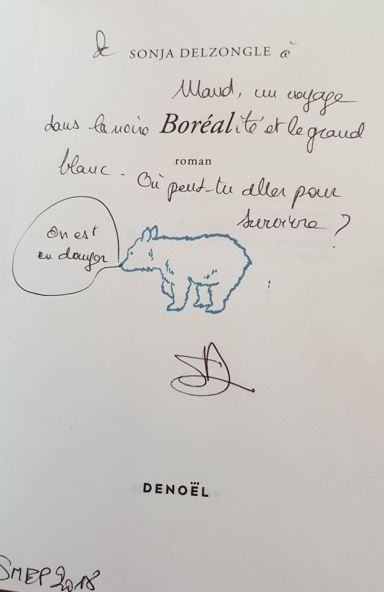 de SONJA DELZONGLE à
Maud, un voyage
dans la noire Boréalité et le grand
blanc. Où peut-tu aller pour
roman
survivre ?
On est
en danger
DENOËL
SMEP 2018